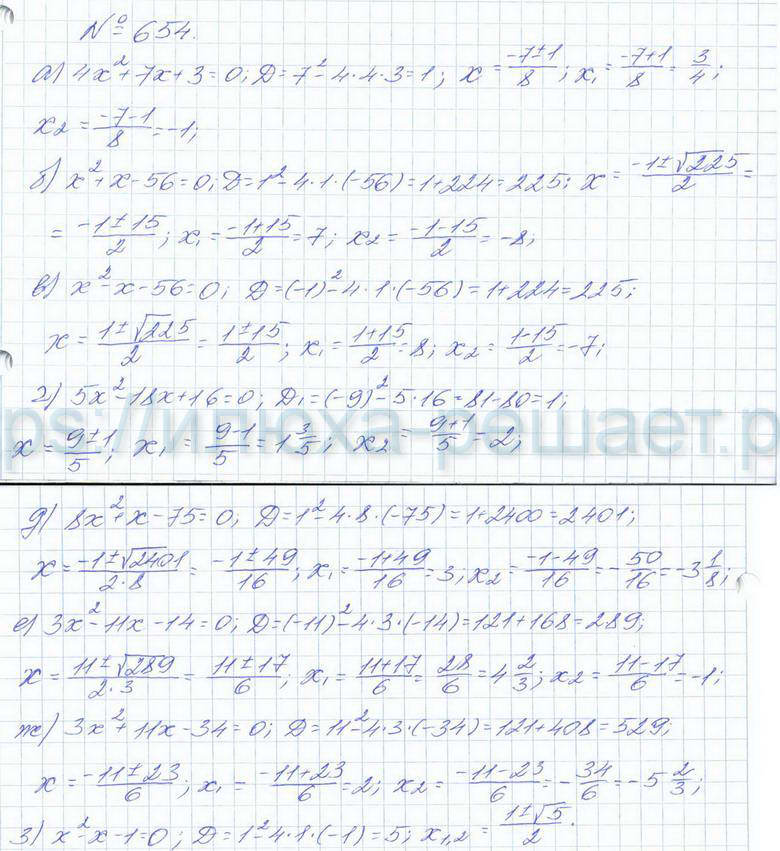 № 654.
а) 4x²+7x+3=0; Д=7²-4·4·3=1; x=(-7±1)/8; x₁=(-7+1)/8=3/4;
x₂=(-7-1)/8=-1;
б) x²+x-56=0; Д=1²-4·1·(-56)=1+224=225; x=(-1±√225)/2=
=(-1±15)/2; x₁=(-1+15)/2=7; x₂=(-1-15)/2=-8;
в) x²-x-56=0; Д=(-1)²-4·1·(-56)=1+224=225;
x=(1±√225)/2=(1±15)/2; x₁=(1+15)/2=8; x₂=(1-15)/2=-7;
г) 5x²-18x+16=0; Д₁=(-9)²-5·16=81-80=1;
x=(9±1)/5; x₁=(9-1)/5=1 3/5; x₂=(9+1)/5=2;
ps://илюха-решает.р
д) 8x²+x-75=0; Д=1²-4·8·(-75)=1+2400=2401;
x=(-1±√2401)/(2·8)=(-1±49)/16; x₁=(-1+49)/16=3; x₂=(-1-49)/16=-50/16=-3 1/8;
е) 3x²-11x-14=0; Д=(-11)²-4·3·(-14)=121+168=289;
x=(11±√289)/(2·3)=(11±17)/6; x₁=(11+17)/6=28/6=4 2/3; x₂=(11-17)/6=-1;
ж) 3x²+11x-34=0; Д=11²-4·3·(-34)=121+408=529;
x=(-11±23)/6; x₁=(-11+23)/6=2; x₂=(-11-23)/6=-34/6=-5 2/3;
з) x²-x-1=0; Д=1²-4·1·(-1)=5; x₁,₂=(1±√5)/2.